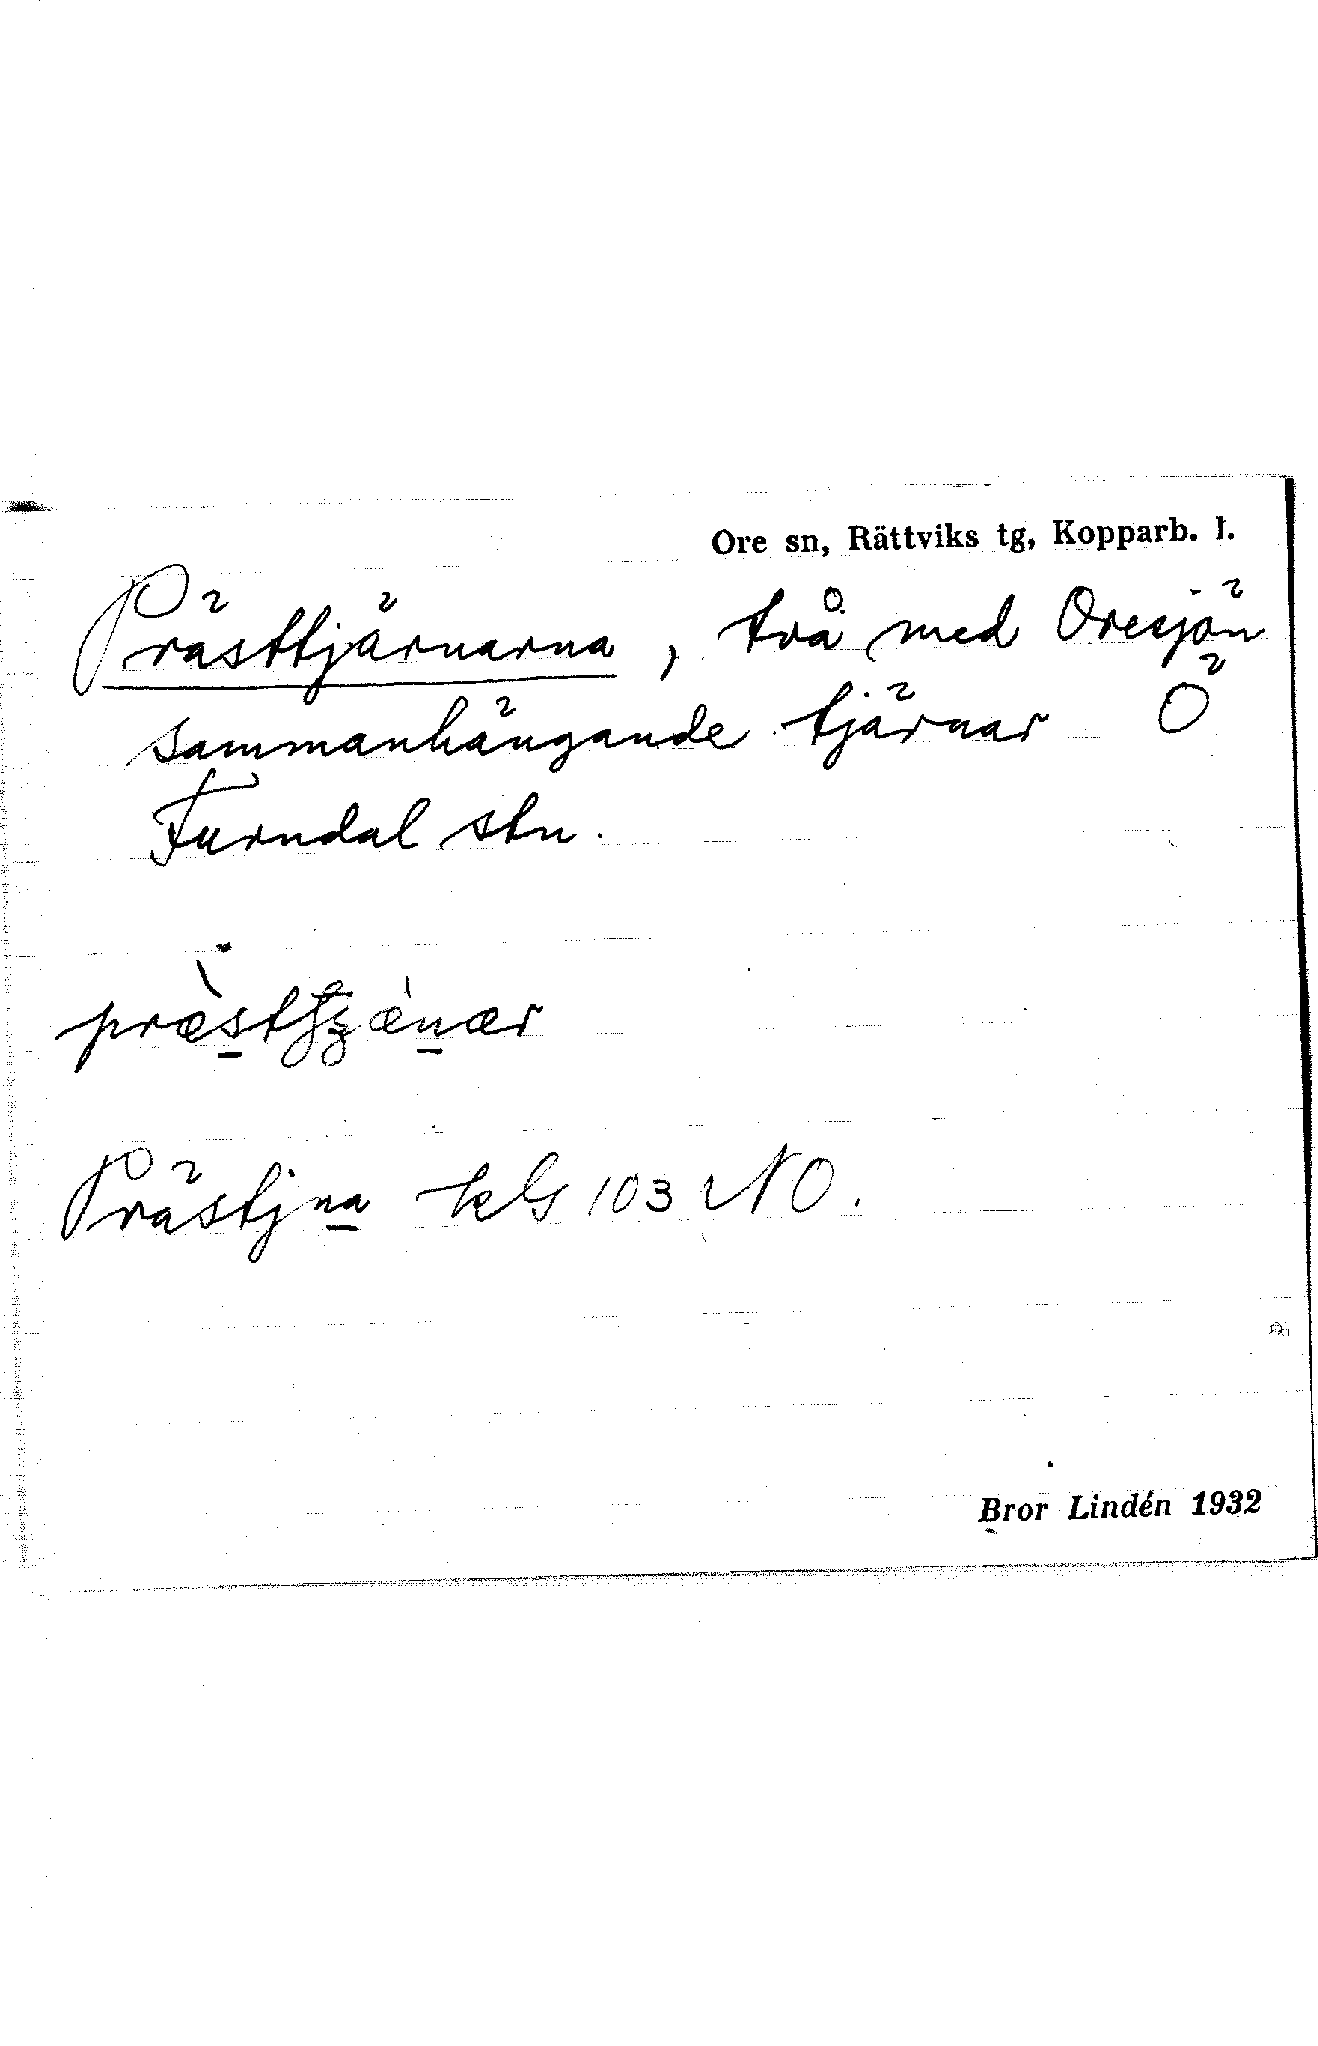 Ore sn, Rättviks tg, Kopparb. l.
Prästtjärnarna, två med Oresjön
sammanhängande tjärnar Ö
Furudal stn.
Prästjna kG 103 NO.
Bror Lindén 1932